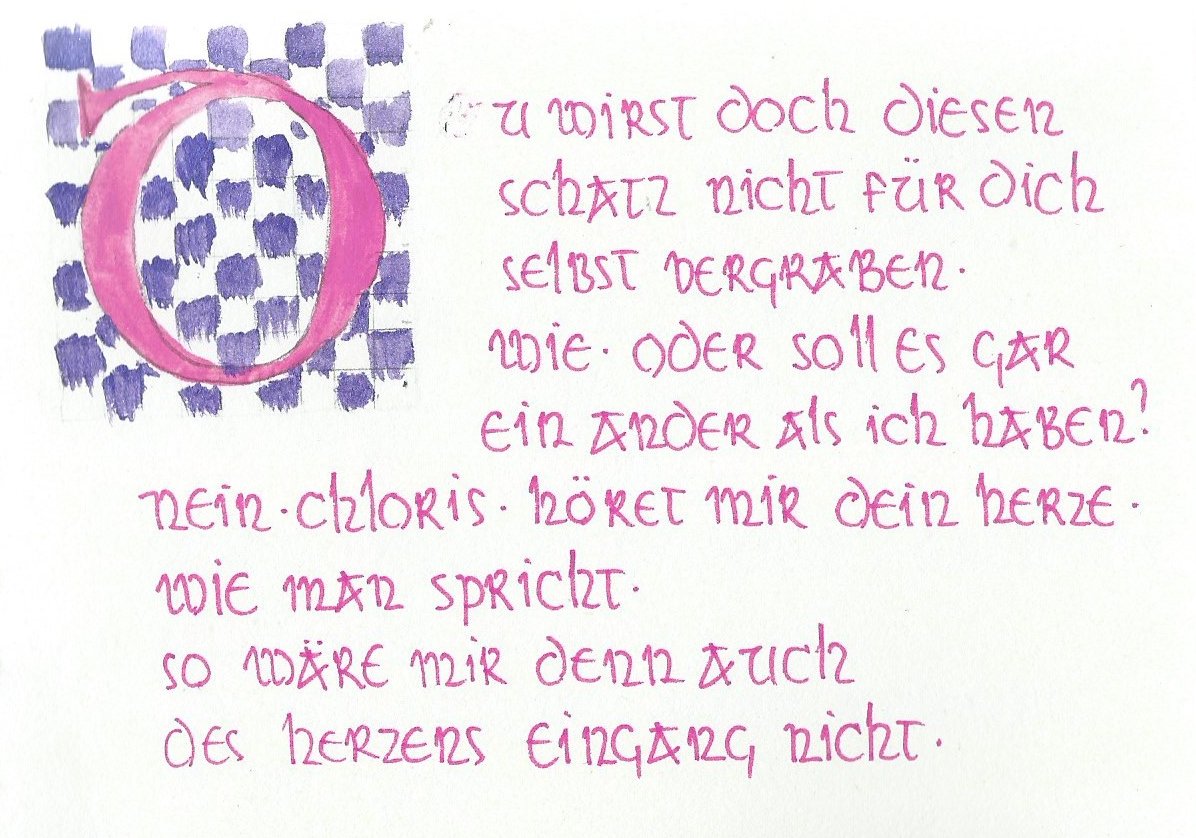 Du wirst doch diesen
schatz nicht für dich
selbst vergraben.
wie. oder soll es gar
ein ander als ich haben?
nein. chloris. höret mir dein herze.
wie man spricht.
so wäre mir denn auch
des herzens eingang nicht.